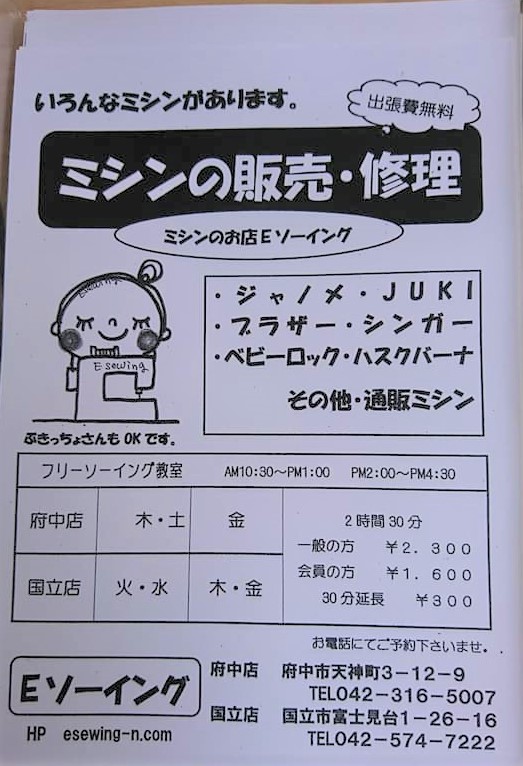 いろんなミシンがあります。
出張費無料
ミシンの販売・修理
ミシンのお店Eソーイング
・ジャノメ・JUKI
・ブラザー・シンガー
・ベビーロック・ハスクバーナ
その他・通販ミシン
Esewing
E sewing
ぶきっちょさんも OK です。
フリーソーイング教室 AM10:30～PM1:00 PM2:00～PM4:30
府中店 木・土 金
国立店 火・水 木・金
2時間30分
一般の方 ￥2．300
会員の方 ￥1．600
30分延長 ￥300
お電話にてご予約下さいませ。
Eソーイング
HP esewing-n.com
府中店 府中市天神町3－12－9
TEL042－316－5007
国立店 国立市富士見台1－26－16
TEL042－574－7222